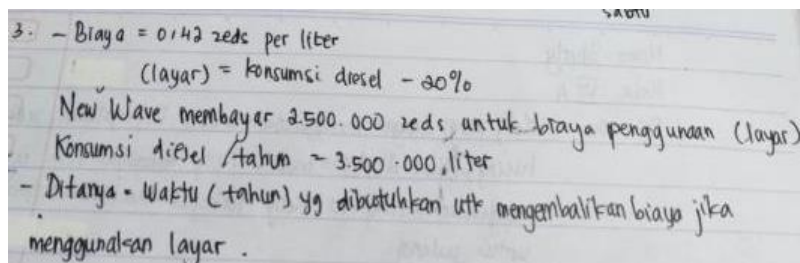 sabtu
3. - Biaya = 0,42 zeds per liter
(layar) = konsumsi diesel - 20%
New Wave membayar 2.500.000 zeds, untuk biaya penggunaan (layar)
Konsumsi diesel /tahun ~ 3.500.000, liter
- Ditanya = Waktu (tahun) yg dibutuhkan utk mengembalikan biaya jika
menggunakan layar.